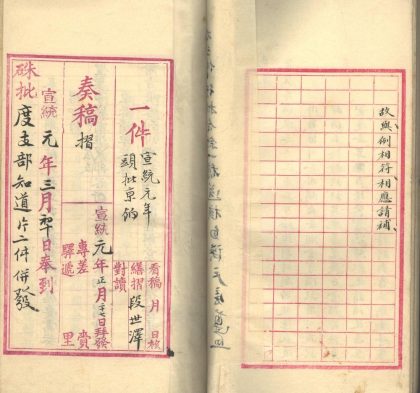 故與例相符相應請補
一件
宣統元年
頭批京餉
看稿 月 日核
繕摺 段世澤
對讀
奏稿 摺
宣統元年正月十七日拜發
專差 賫
驛遞 里
宣統元年三月初日奉到
硃批
度支部知道片二件併發